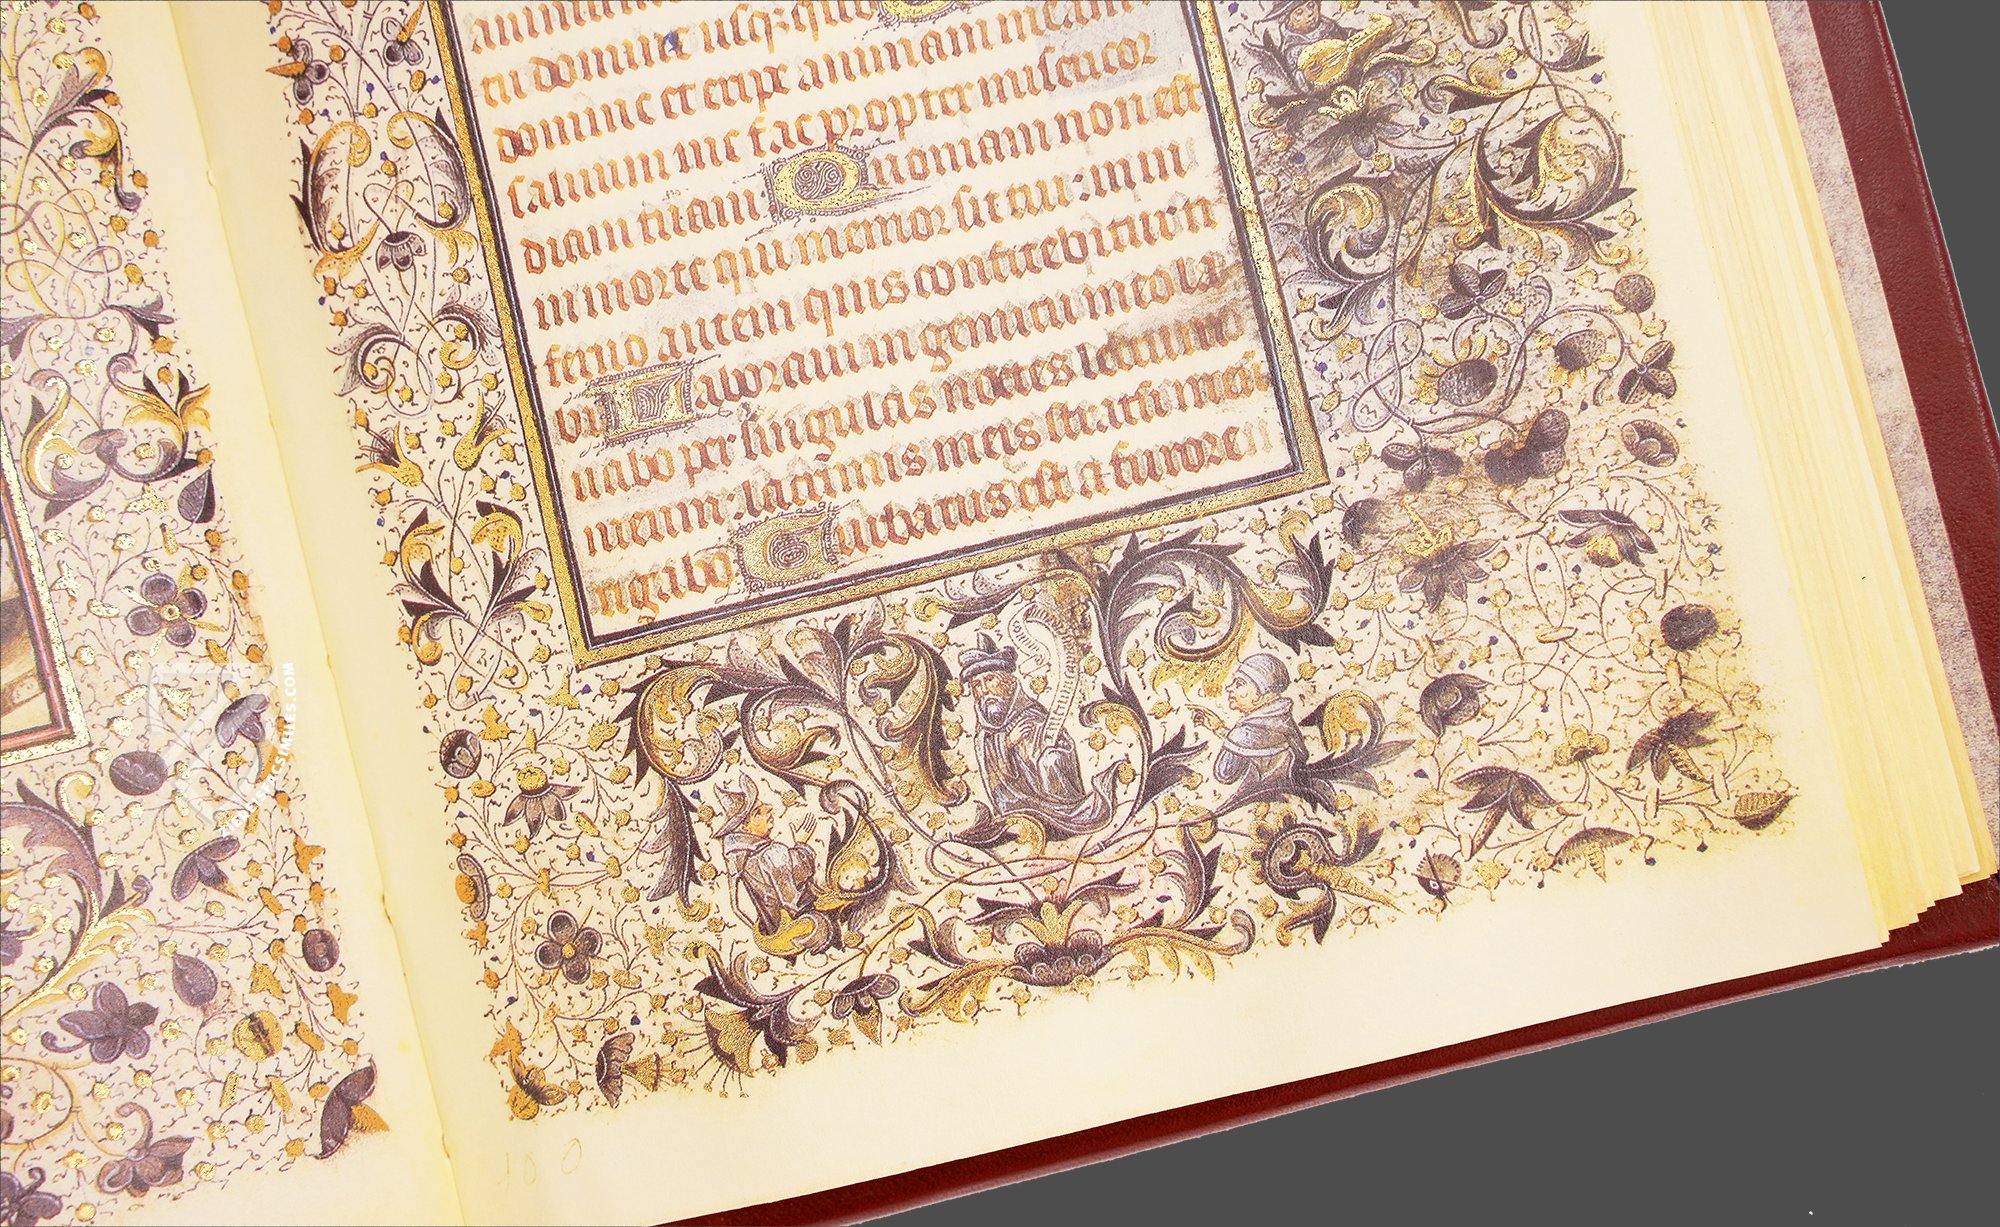 tu domine usq; quo
domine et eripe animam meam
saluum me fac propter misericor
diam tuam Quoniam non est
in morte qui memor sit tui: in in
ferno autem quis confitebitur ti
bi Laboraui in gemitu meo la
uabo per singulas noctes lectum
meum: lacrimis meis stratum meū
rigabo Turbatus est a furore
100
FACSIMILES.COM